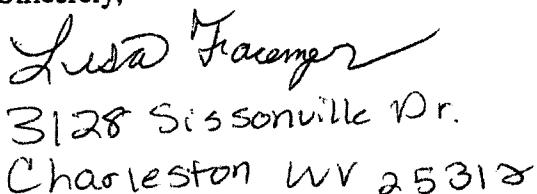 Sincerely,
Lisa Facemyer
3128 Sissonville Dr.
Charleston WV 25312